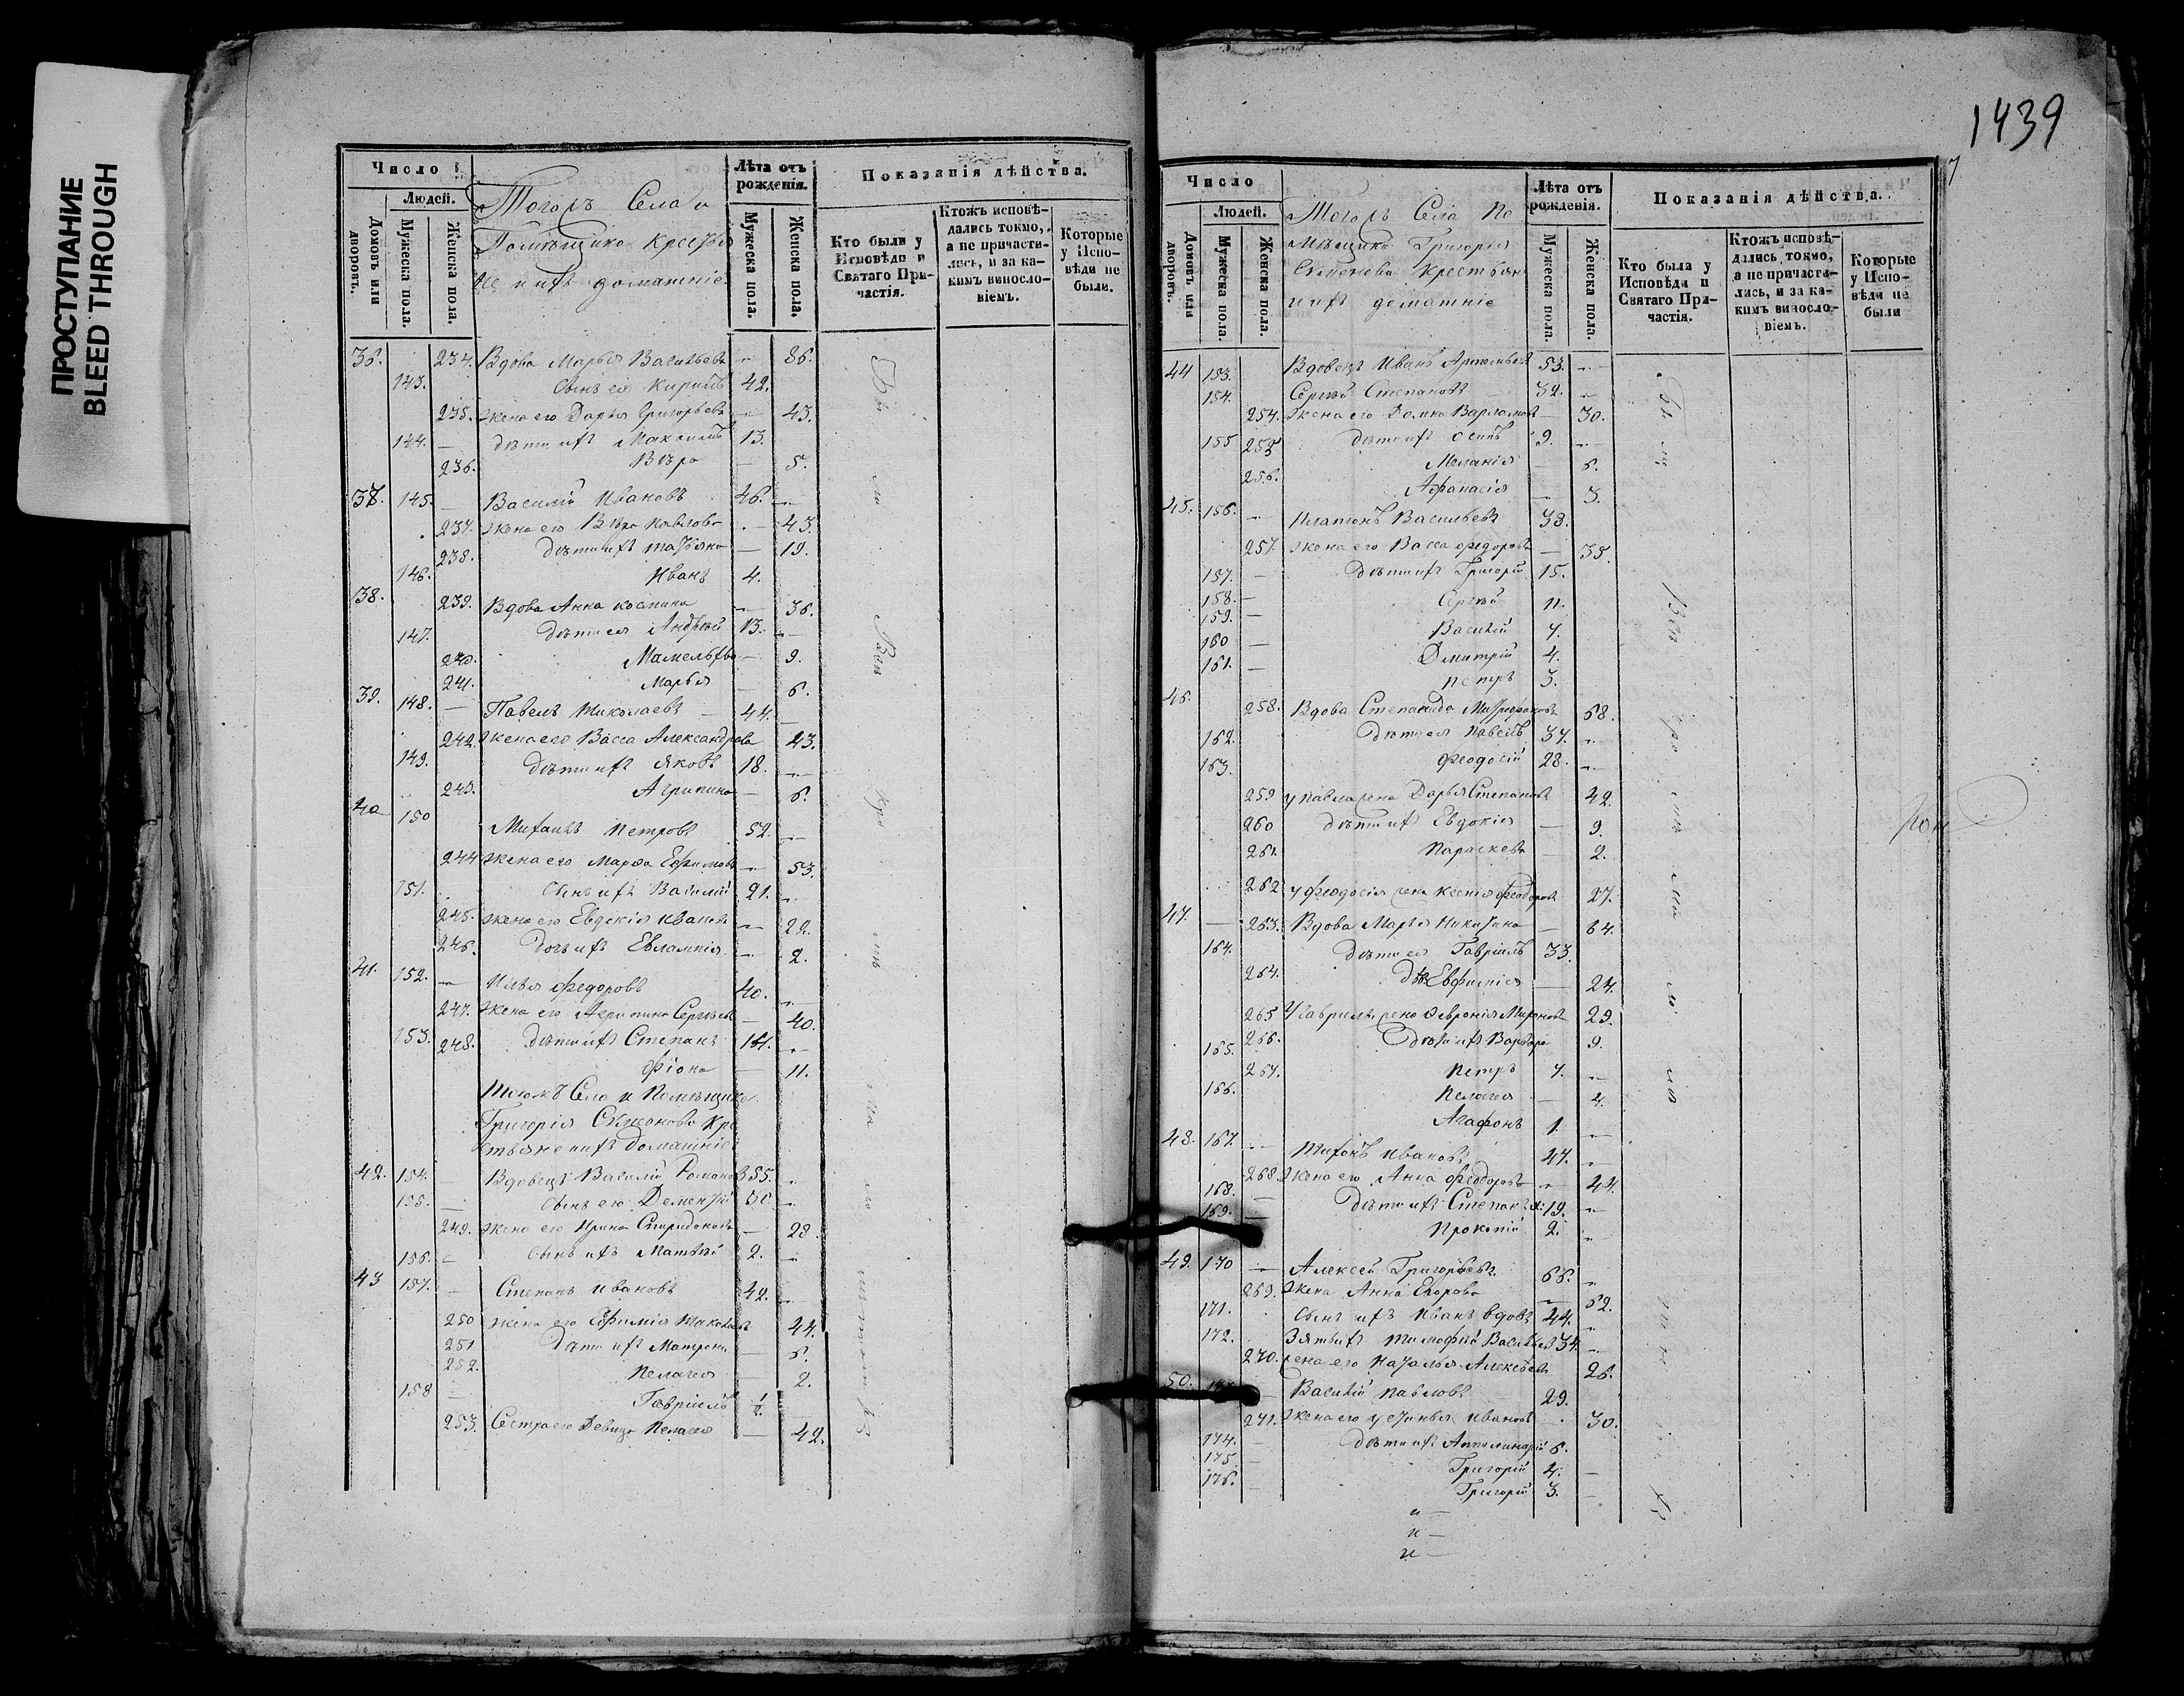 ПРОСТУПАНИЕ
BLEED THROUGH
Число
Людей.
Домовъ или дворовъ.
Мужеска пола.
Женска пола.
Тогожъ Села и
Помѣщика Крестья
не и ихъ домашніе
Лѣта отъ рожденія.
Мужеска пола.
Женска пола.
Показанія дѣйства.
Кто были у Исповѣди и Святаго Причастія.
Ктожъ исповѣдались токмо, а не причастились, и за какимъ винословіемъ.
Которые у Исповѣди не были.
36. 234. Вдова Марья Васильева — 86.
143. Сынъ ея Кирилъ 42.
235. Жена его Дарья Григорьева — 43.
144. — Дѣти ихъ Максимъ 13.
236. Вѣра — 5.
37. 145. — Василій Ивановъ 46. —
237. Жена его Вѣра Павлова — 43.
238. Дѣти ихъ Татьяна — 19.
146. Иванъ 4.
38. 239. Вдова Анна Космина — 36.
147. Дѣти ея Андрей 13. —
240. Мамельфа — 9.
241. Марья — 6.
39. 148. — Павелъ Николаевъ — 44. —
242. Жена его Васса Александрова 43.
149. Дѣти ихъ Яковъ 18. —
243. Агрипина — 6.
40 150 Михаилъ Петровъ 52. —
244 Жена его Марфа Ефимова — 53.
151. Сынъ ихъ Василій 21. —
245. Жена его Евдокія Иванова — 22.
246. Дочь ихъ Евлампія — 2.
41. 152. — Илья Федоровъ 40. —
247. Жена его Агрипина Сергѣева — 40.
153. 248. Дѣти ихъ Степанъ 14. —
Фіона — 11.
Тогожъ Села и Помѣщика
Григорія Семенова Кре
стьяне и ихъ домашніе
42. 154. — Вдовецъ Василій Романовъ 55. —
155. — Сынъ его Дементій 30 —
249. Жена его Ирина Спиридонова — 28.
156. — Сынъ ихъ Матвѣй 2. —
43 157. — Степанъ Ивановъ 42. —
250 Жена его Ефимія Николаева 44.
251 Дѣти ихъ Матрона — 6.
252. Пелагея — 2.
158 — Гавріилъ 1/2.
253. Сестра его Девица Пелагея — 42.
1439
7
Число
Людей.
Домовъ или дворовъ.
Мужеска пола.
Женска пола.
Тогожъ Села По
мѣщика Григорія
Семенова Крестьяне
и ихъ домашніе
Лѣта отъ рожденія.
Мужеска пола.
Женска пола.
Показанія дѣйства.
Кто была у Исповѣди и Святаго Причастія.
Ктожъ исповѣдались токмо, а не причастились, и за какимъ винословіемъ.
Которые у Исповѣди не были
44 153. Вдовецъ Иванъ Артемьевъ 53. —
154. Сергѣй Степановъ 32. —
254. Жена его Домна Варламова — 30.
155 255 Дѣти ихъ Осипъ 9. —
Меланія — 6.
256. Афанасія — 3.
45. 156. — Платонъ Васильевъ 38.
257. Жена его Васса Федорова — 35.
157. — Дѣти ихъ Григорій 15.
158. — Сергѣй 11.
159. — Василій 7.
160 — Дмитрій 4.
161. — Петръ 3.
46. 258. Вдова Степанида Митрофанова 68.
162. Дѣти ея Павелъ 37. —
163. Феодосій 28. —
259 у Павла жена Дарья Степанова 42.
260 Дѣти ихъ Евдокія — 9.
261. Параскева — 2.
262 у Феодосія жена Ксенія Феодорова 27.
47. — 263. Вдова Марья Никитина — 64.
164. Дѣти ея Гавріилъ 33.
264. Евфимія — 24.
265 У Гавріила жена Февронія Миронова 29.
165. 266. Дѣти ихъ Варвара 9.
267. Петръ 7. —
166. Пелагея — 4.
Агафонъ 1. —
48. 167. — Тихонъ Ивановъ 47. —
268. Жена его Анна Феодорова — 44.
168. — Дѣти ихъ Степанъ 19. —
169. — Прокопій 2. —
49. 170 — Алексей Григорьевъ 66. —
269. Жена Анна Егорова — 62.
171. Сынъ ихъ Иванъ вдовъ 44. —
172. Зять ихъ Тимофей Васильевъ 34. —
270. жена его Наталья Алексеева 26.
50. — Василій Павловъ 29.
271. Жена его Устинья Иванова — 30.
174. — Дѣти ихъ Апполинарій 6.
175. — Григорій 4. —
176. — Григорій 3. —